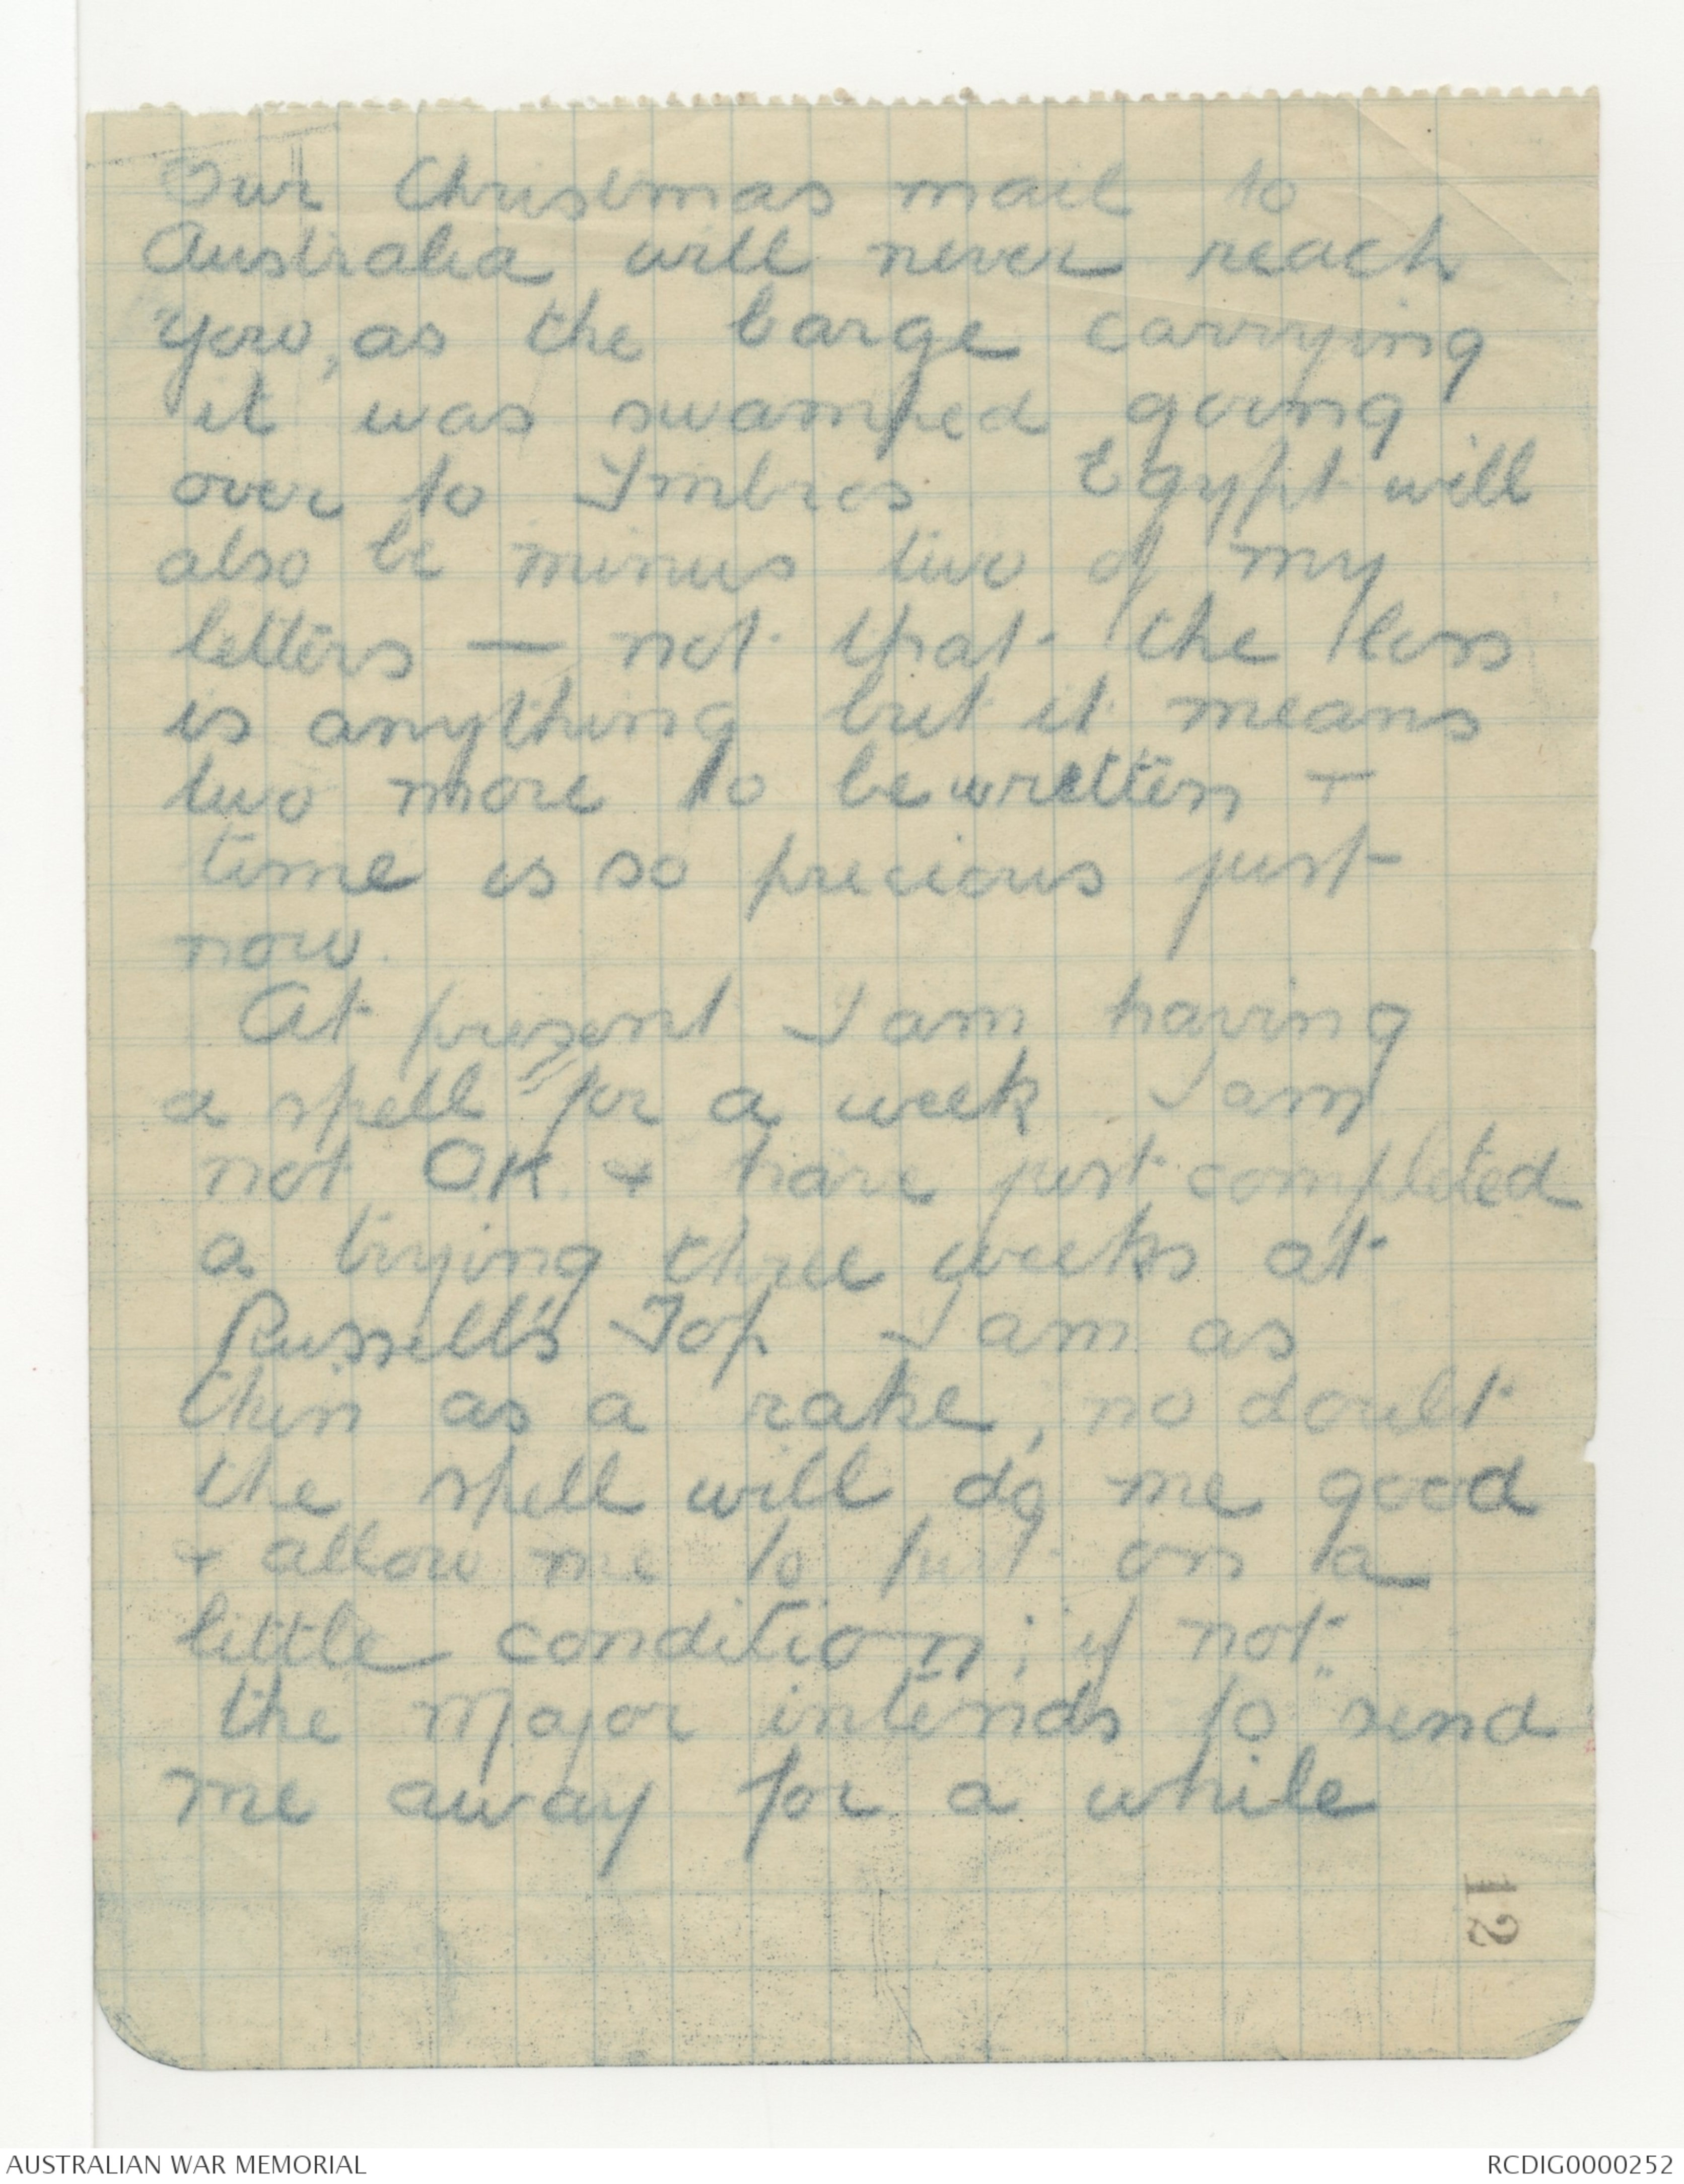 Our Christmas mail to
Australia will never reach
you, as the barge carrying
it was swamped going
over to Imbros Egypt will
also be minus two of my
letters — not that the loss
is anything but it means
two more to be written +
time is so precious just
now.
At present I am having
a spell for a week I am
not O.K. + have just completed
a trying three weeks at
Russell's Top I am as
thin as a rake, no doubt
the spell will do me good
+ allow me to put on a
little condition; if not
the Major intends to send
me away for a while
12
AUSTRALIAN WAR MEMORIAL
RCDIG0000252